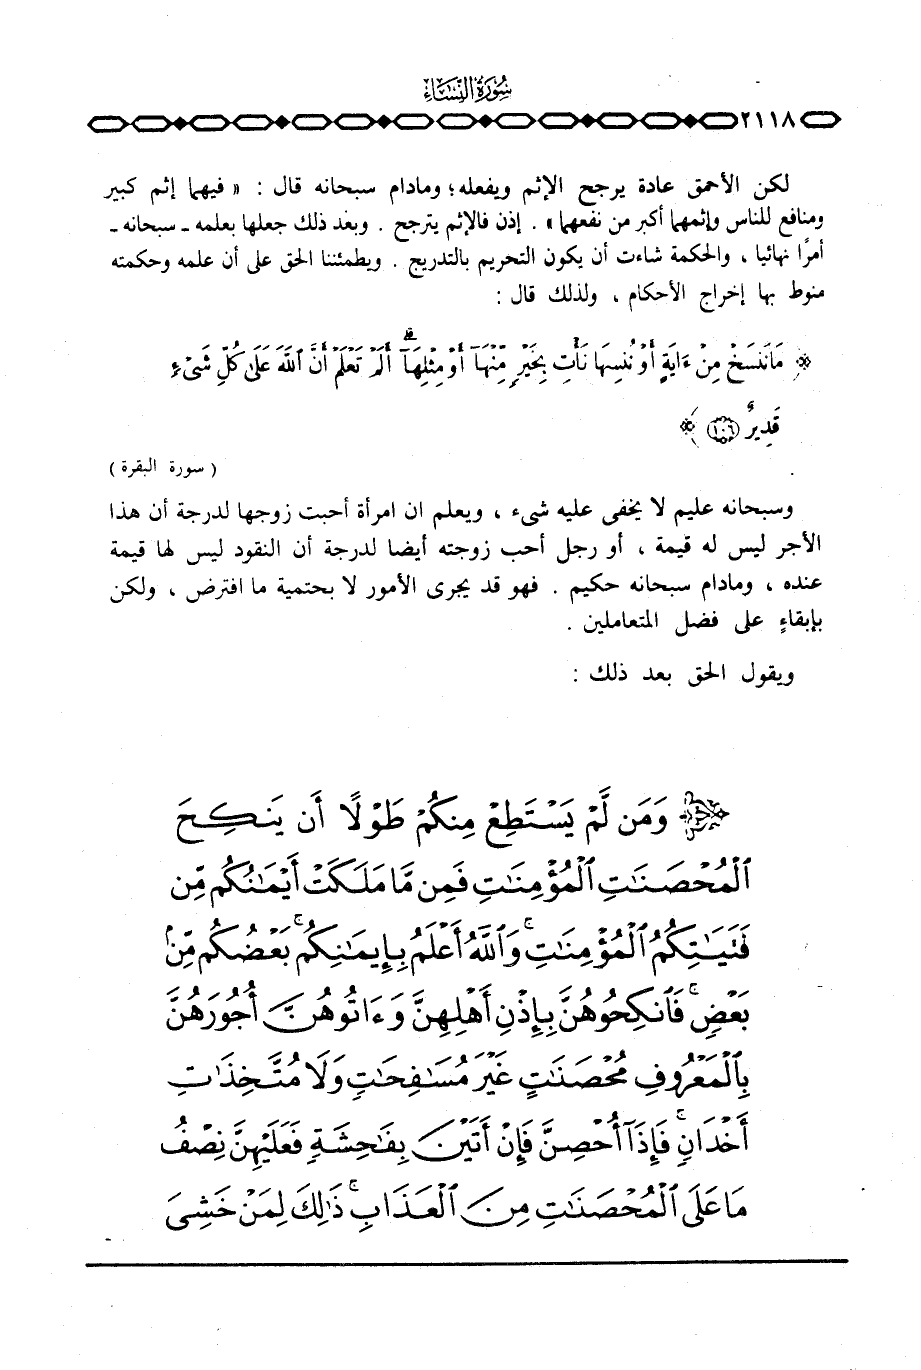 سُورَةُ النِّسَاء
٢١١٨
لكن الأحمق عادة يرجح الإثم ويفعله؛ ومادام سبحانه قال : « فيهما إثم كبير
ومنافع للناس وإثمهما أكبر من نفعهما » . إذن فالإثم يترجح . وبعد ذلك جعلها بعلمه ـ سبحانه ـ
أمرًا نهائيا ، والحكمة شاءت أن يكون التحريم بالتدريج . ويطمئننا الحق على أن علمه وحكمته
منوط بها إخراج الأحكام ، ولذلك قال :
﴿ مَا نَنسَخْ مِنْ ءَايَةٍ أَوْ نُنسِهَا نَأْتِ بِخَيْرٍ مِّنْهَآ أَوْ مِثْلِهَآ ۗ أَلَمْ تَعْلَمْ أَنَّ ٱللَّهَ عَلَىٰ كُلِّ شَىْءٍ
قَدِيرٌ ﴿١٠٦﴾ ﴾
( سورة البقرة )
وسبحانه عليم لا يخفى عليه شىء ، ويعلم ان امرأة أحبت زوجها لدرجة أن هذا
الأجر ليس له قيمة ، أو رجل أحب زوجته أيضا لدرجة أن النقود ليس لها قيمة
عنده ، ومادام سبحانه حكيم . فهو قد يجرى الأمور لا بحتمية ما افترض ، ولكن
بإبقاءٍ على فضل المتعاملين .
ويقول الحق بعد ذلك :
﴿ وَمَن لَّمْ يَسْتَطِعْ مِنكُمْ طَوْلًا أَن يَنكِحَ
ٱلْمُحْصَنَٰتِ ٱلْمُؤْمِنَٰتِ فَمِن مَّا مَلَكَتْ أَيْمَٰنُكُم مِّن
فَتَيَٰتِكُمُ ٱلْمُؤْمِنَٰتِ ۚ وَٱللَّهُ أَعْلَمُ بِإِيمَٰنِكُم ۚ بَعْضُكُم مِّنۢ
بَعْضٍ ۚ فَٱنكِحُوهُنَّ بِإِذْنِ أَهْلِهِنَّ وَءَاتُوهُنَّ أُجُورَهُنَّ
بِٱلْمَعْرُوفِ مُحْصَنَٰتٍ غَيْرَ مُسَٰفِحَٰتٍ وَلَا مُتَّخِذَٰتِ
أَخْدَانٍ ۚ فَإِذَآ أُحْصِنَّ فَإِنْ أَتَيْنَ بِفَٰحِشَةٍ فَعَلَيْهِنَّ نِصْفُ
مَا عَلَى ٱلْمُحْصَنَٰتِ مِنَ ٱلْعَذَابِ ۚ ذَٰلِكَ لِمَنْ خَشِىَ